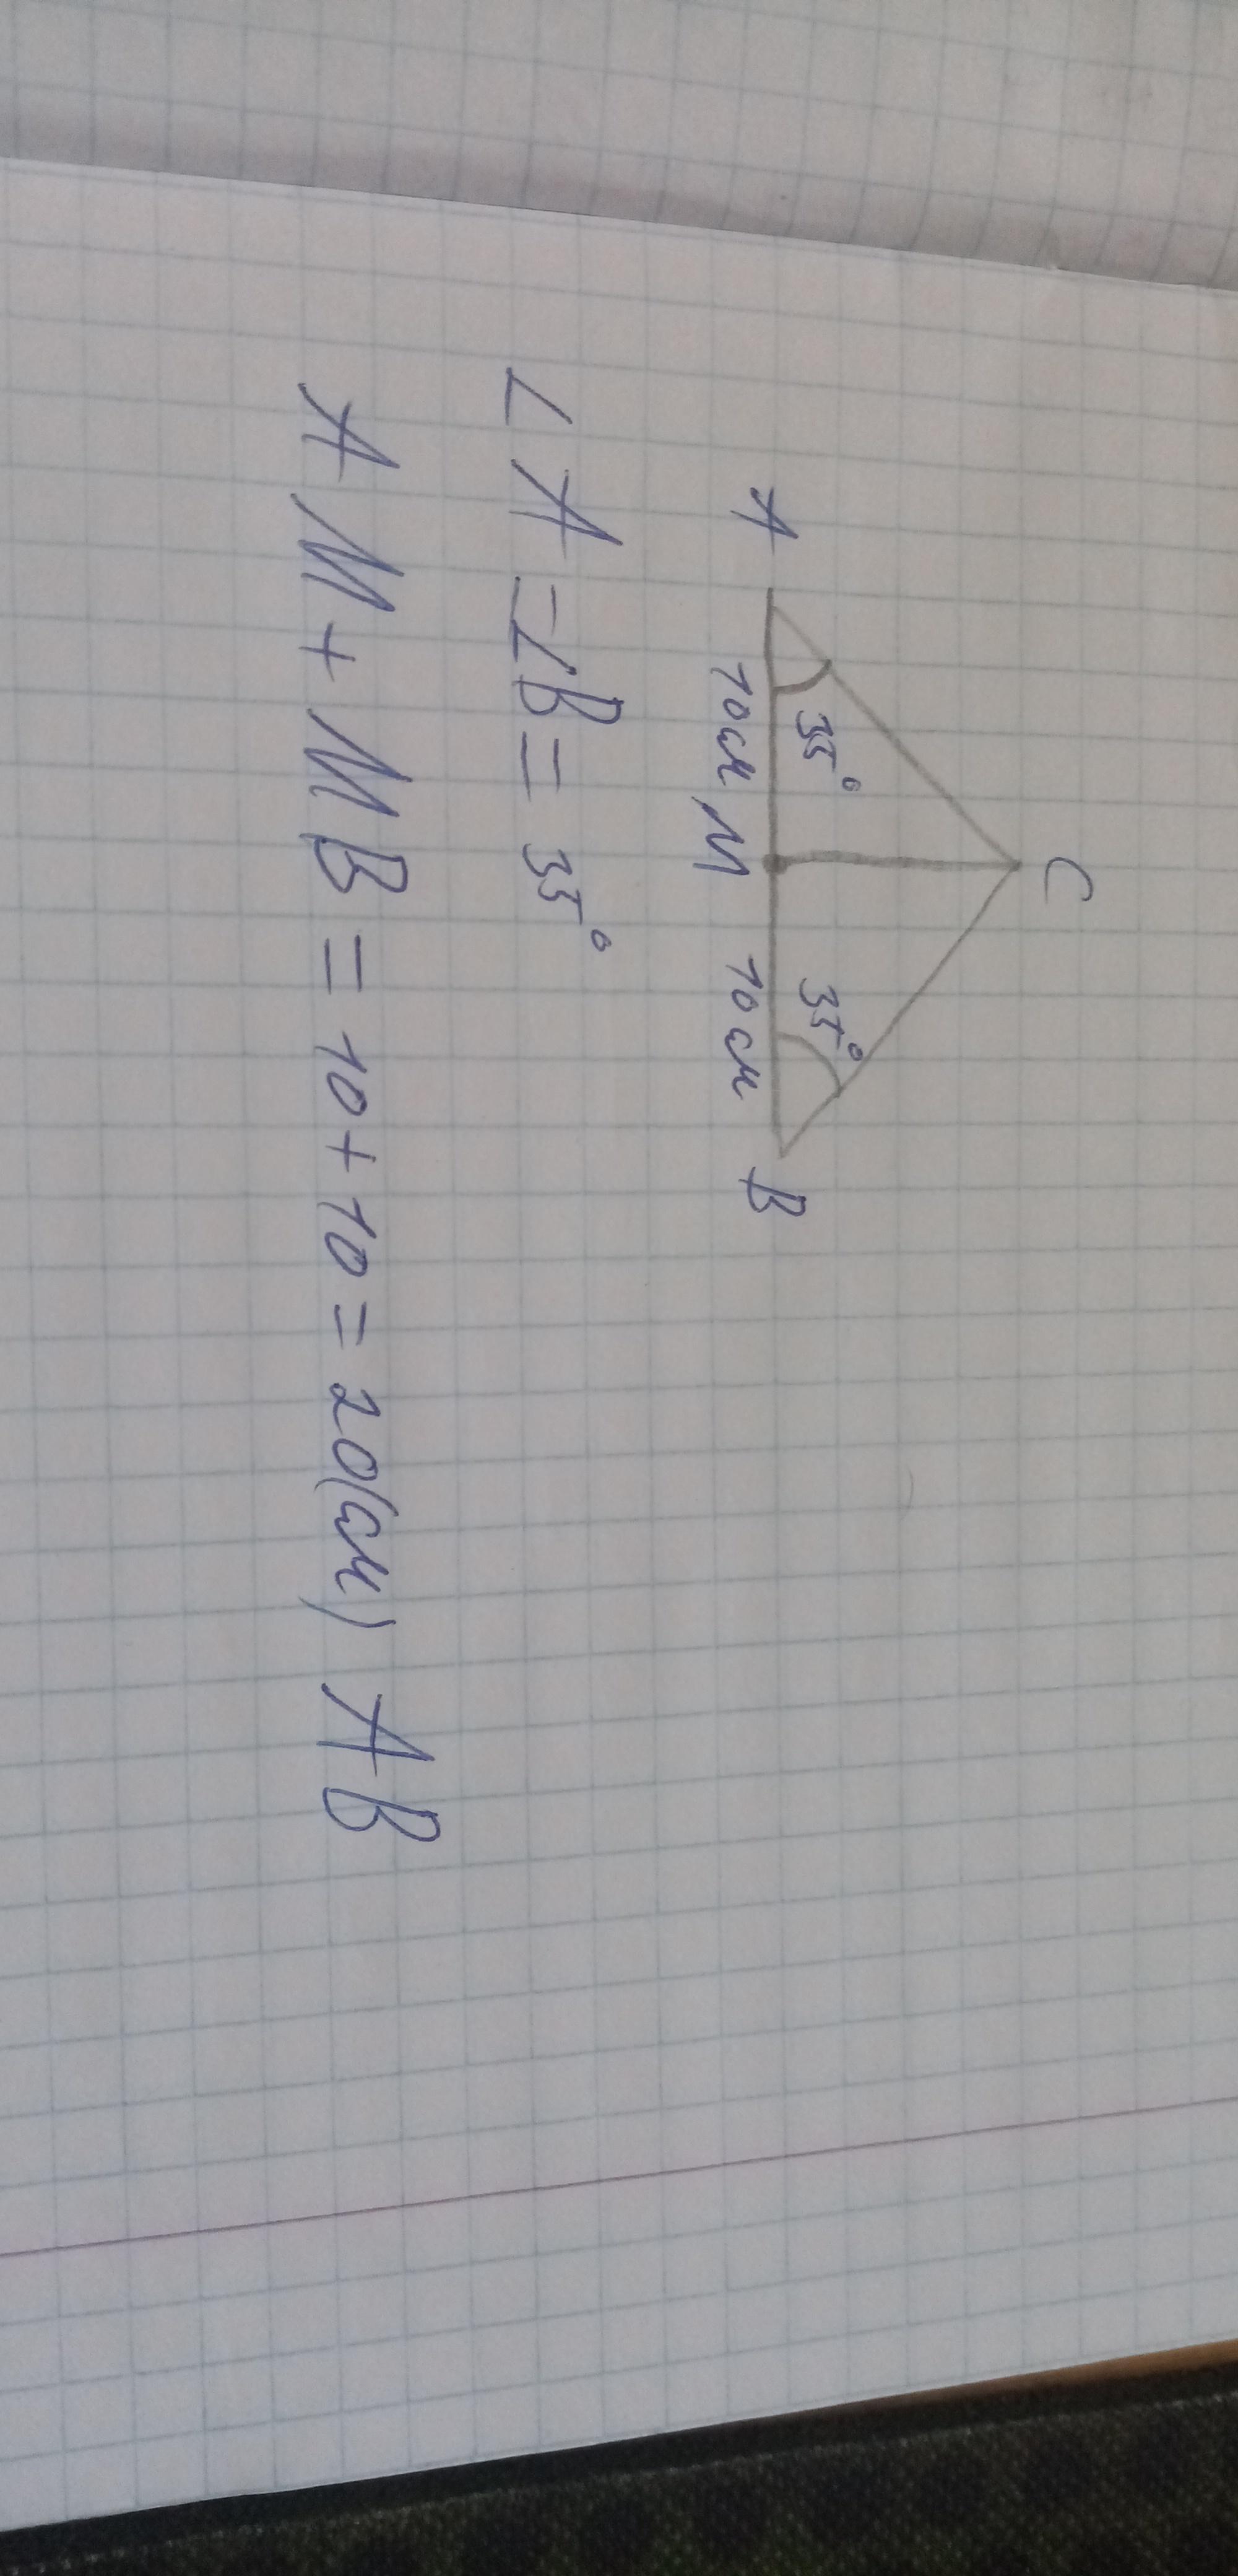 C
35° 35°
A 10см M 10см B
∠A=∠B=35°
AM+MB=10+10=20(см) AB